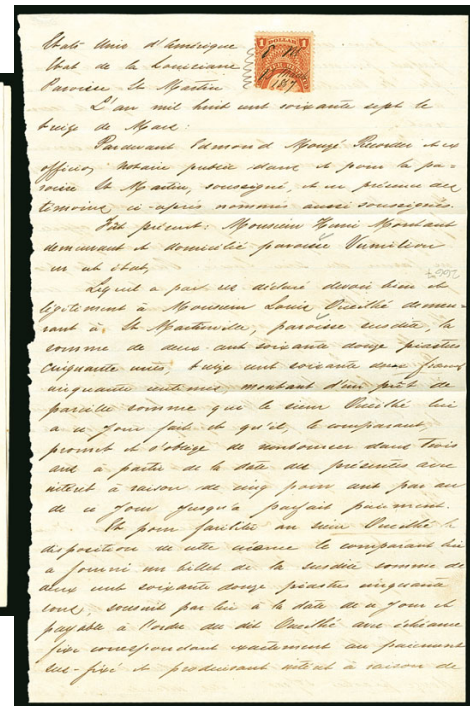 1 DOLLAR 1
Etats Unis d'Amérique
Etat de la Louisiane
Paroisse St Martin
L'an mil huit cent soixante sept le
treize de Mars:
Pardevant Edmond Mouzé Recorder et ex
officio, notaire public dans et pour la pa-
roisse St Martin, soussigné, et en présence des
témoins ci-après nommés aussi soussignés
Fût présent: Monsieur Henri Montant
demeurant et domicilié paroisse Vermilion
en cet état,
Lequel a par ces déclaré devoir bien et
légitimement à Monsieur Louis demeu-
rant à St Martinville, paroisse susdite, la
somme de deux cent soixante douze piastres
cinquante cents, treize cent soixante deux francs
cinquante centimes, montant d'un prêt de
pareille somme que le sieur lui
a ce jour fait et qu'il, le comparant,
promet et s'oblige de rembourser dans trois
ans à partir de la date des présentes avec
intérêt à raison de cinq pour cent par an
de ce jour jusqu'à parfait paiement.
Et pour faciliter au sieur la
disposition de cette créance le comparant lui
a fourni un billet de la susdite somme de
deux cent soixante douze piastres cinquante
cents, souscrit par lui à la date de ce jour et
payable à l'ordre du dit avec échéance
fixe correspondant exactement au paiement
sus-fixé et produisant intérêt à raison de